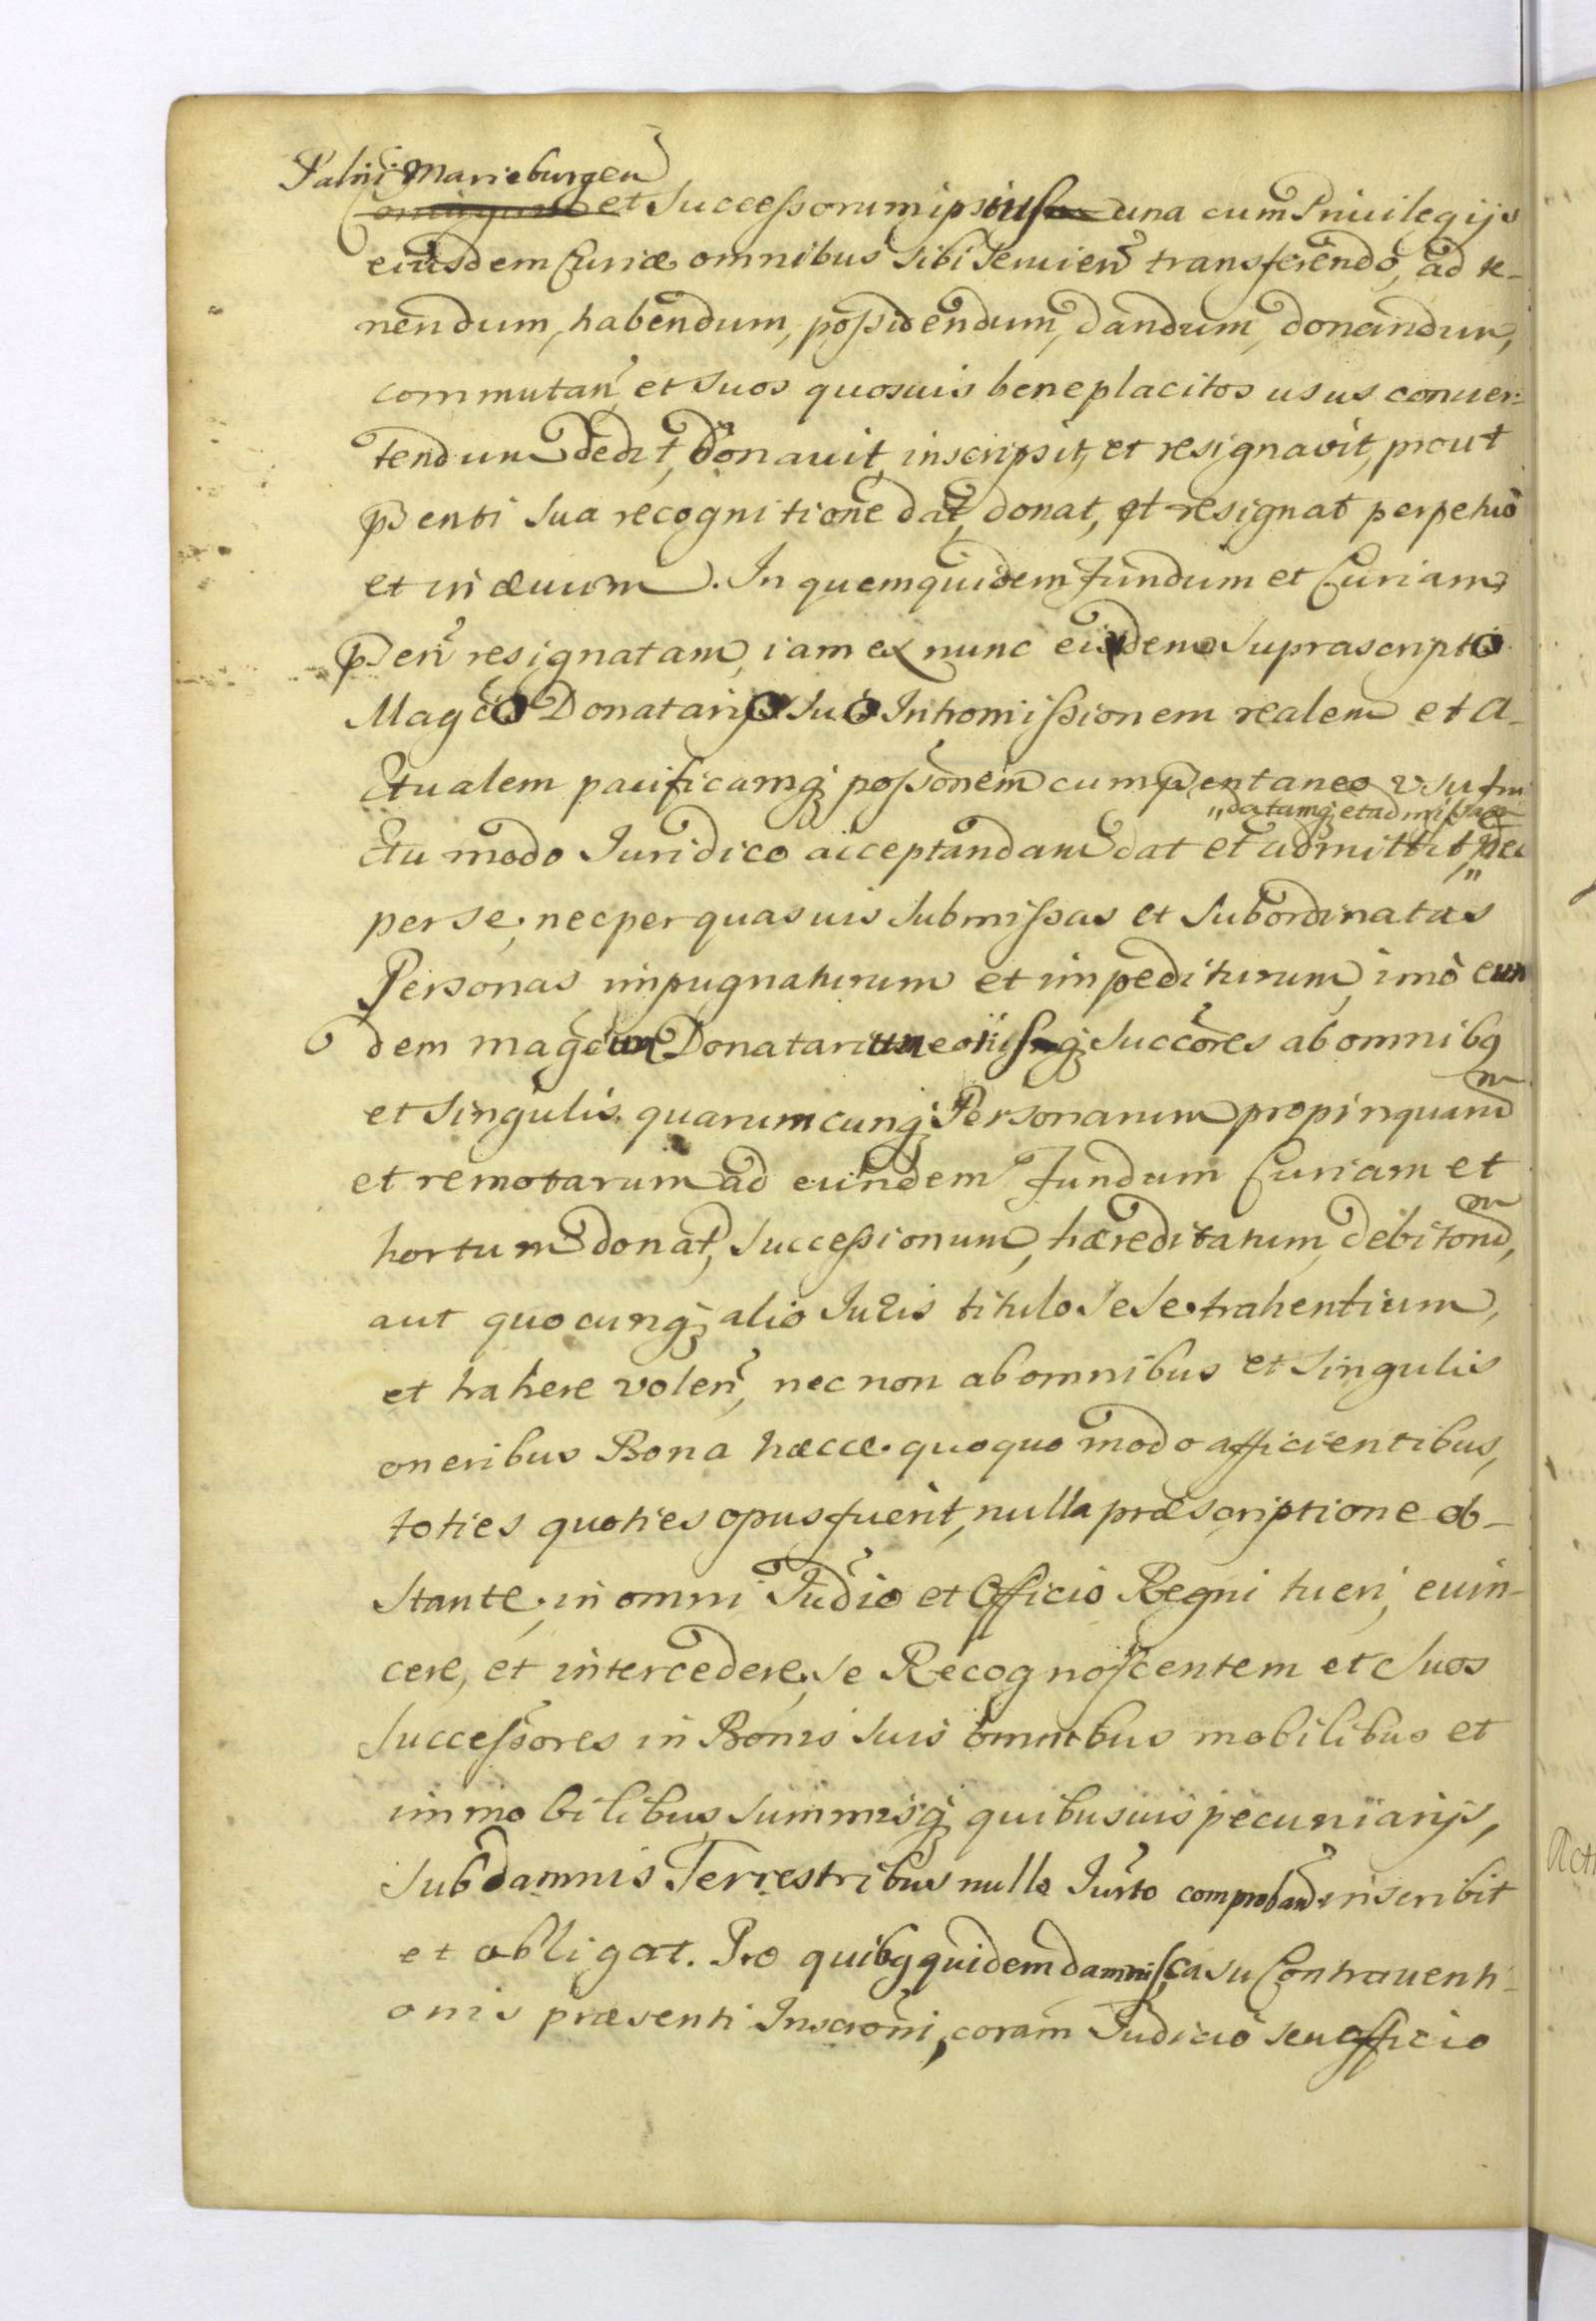 Palni Marieburgen
et Successorum ipsius una cum Privilegijs
eiusdem Curiæ omnibus sibi Seruien̄ transferendo, ad te-
nendum, habendum, possidendum, dandum, donandum,
commutan̄ et Suos quosuis beneplacitos usus conuer-
tendum dedit, donauit, inscripsit, et resignavit, prout
pn̄senti Sua recognitione dat, donat, et resignat perpetuò
et in æuum. In quemquidem Fundum et Curiam
pn̄sen̄ resignatam, iam ex nunc eidem Suprascripto
Magco Donatario Suo Intromissionem realem et a-
ctualem pacificamq; possōnem cum pn̄sentaneo usufru
„datamq; et admissam
ctu modo Iuridico acceptandam dat et admittit, nec
per se, nec per quasuis Submissas et Subordinatas
Personas impugnaturum et impediturum, imò eun
dem magcum Donatarium eiusq; Succōres ab omnibq
et Singulis quarumcunq; Personarum propinquarum
et remotarum ad eundem Fundum Curiam et
hortum donat, Successionum, hæreditatum, debitorum,
aut quocunq; alio Iuris titulo Sese trahentium,
et trahere volen̄, nec non ab omnibus et Singulis
oneribus Bona hæcce quoquo modo afficientibus,
toties quoties opus fuerit, nulla præscriptione ob-
stante, in omni Iudīo et Officio Regni tueri, euin-
cere, et intercedere, Se Recognoscentem et Suos
Successores in Bonis Suis omnibus mobilibus et
immobilibus, Summisq; quibusuis pecuniarijs,
Sub damnis Terrestribus nullo Iurto comproban̄ inscribit
et obligat. Pro quibq quidem damnis, casu Contrauenti-
onis præsenti Inscrōni, coram Iudicio seu officio